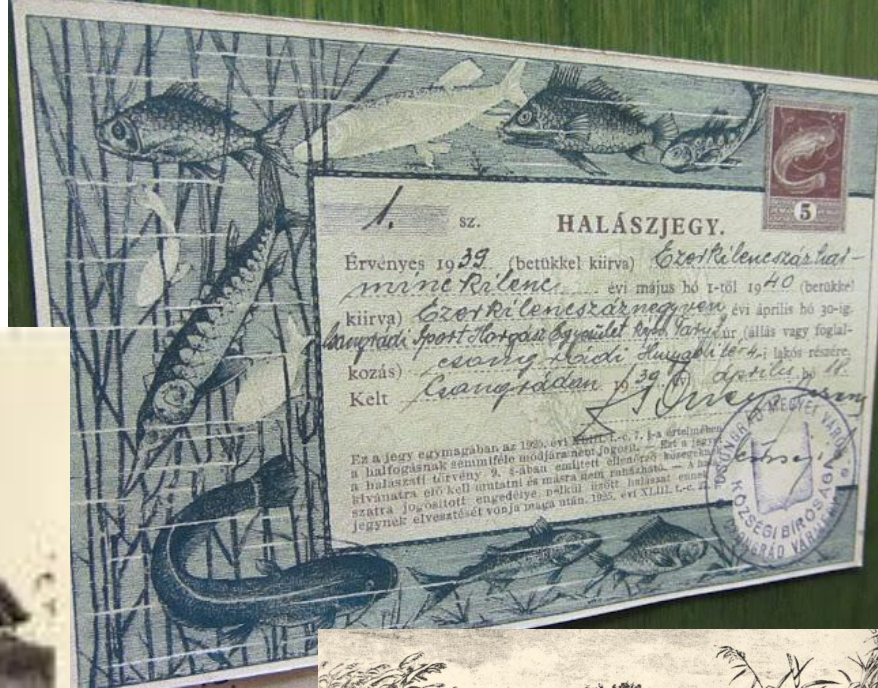 1. sz. HALÁSZJEGY.
5
Érvényes 1939 (betükkel kiirva) Ezerkilencszázhar-
minckilenc évi május hó 1-től 1940 (betükkel
kiirva) Ezerkilencszáznegyven évi április hó 30-ig.
Sport Horgász Egyesület úr (állás vagy foglal-
kozás) csongrádi Hunyadi tér 4-i lakós részére.
Kelt Csongrádon 1939 évi április hó 18.
Ez a jegy egymagában az 1925. évi XLIII. t.-c. 7. §-a értelmében
a halfogásnak semmiféle módjára nem jogosit. — Ezt a jegyet
a halászati törvény 9. §-ában emlitett ellenőrző közegeknek
kivánatra elő kell mutatni és másra nem ruházható. — A
jogositott engedélye nélkül űzött halászat ennek
jegynek elvesztését vonja maga után. 1925. évi XLIII. t.-c.
CSONGRÁD MEGYEI VÁROS
KÖZSÉGI BIRÓSÁGA
CSONGRÁD VÁRMEGYE